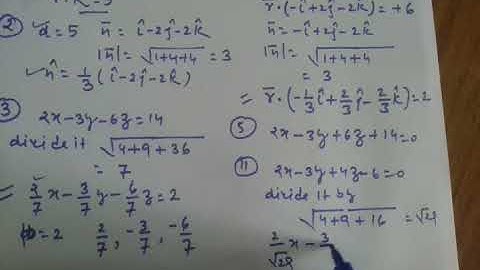 ② d=5 n̄ = î-2ĵ-2k̂
|n̄| = √1+4+4 = 3
n̂ = 1/3 (î-2ĵ-2k̂)
③ 2x-3y-6z=14
divide it √4+9+36
= 7
= 2/7 x - 3/7 y - 6/7 z = 2
p=2 2/7, -3/7, -6/7
r̄·(-î+2ĵ-2k̂)=+6
n̄ = -î+2ĵ-2k̂
|n̄| = √1+4+4
= 3
= r̄·(-1/3 î + 2/3 ĵ - 2/3 k̂) = 2
⑤ 2x-3y+6z+14=0
⑪ 2x-3y+4z-6=0
divide it by
√4+9+16 = √29
2/√29 x - 3